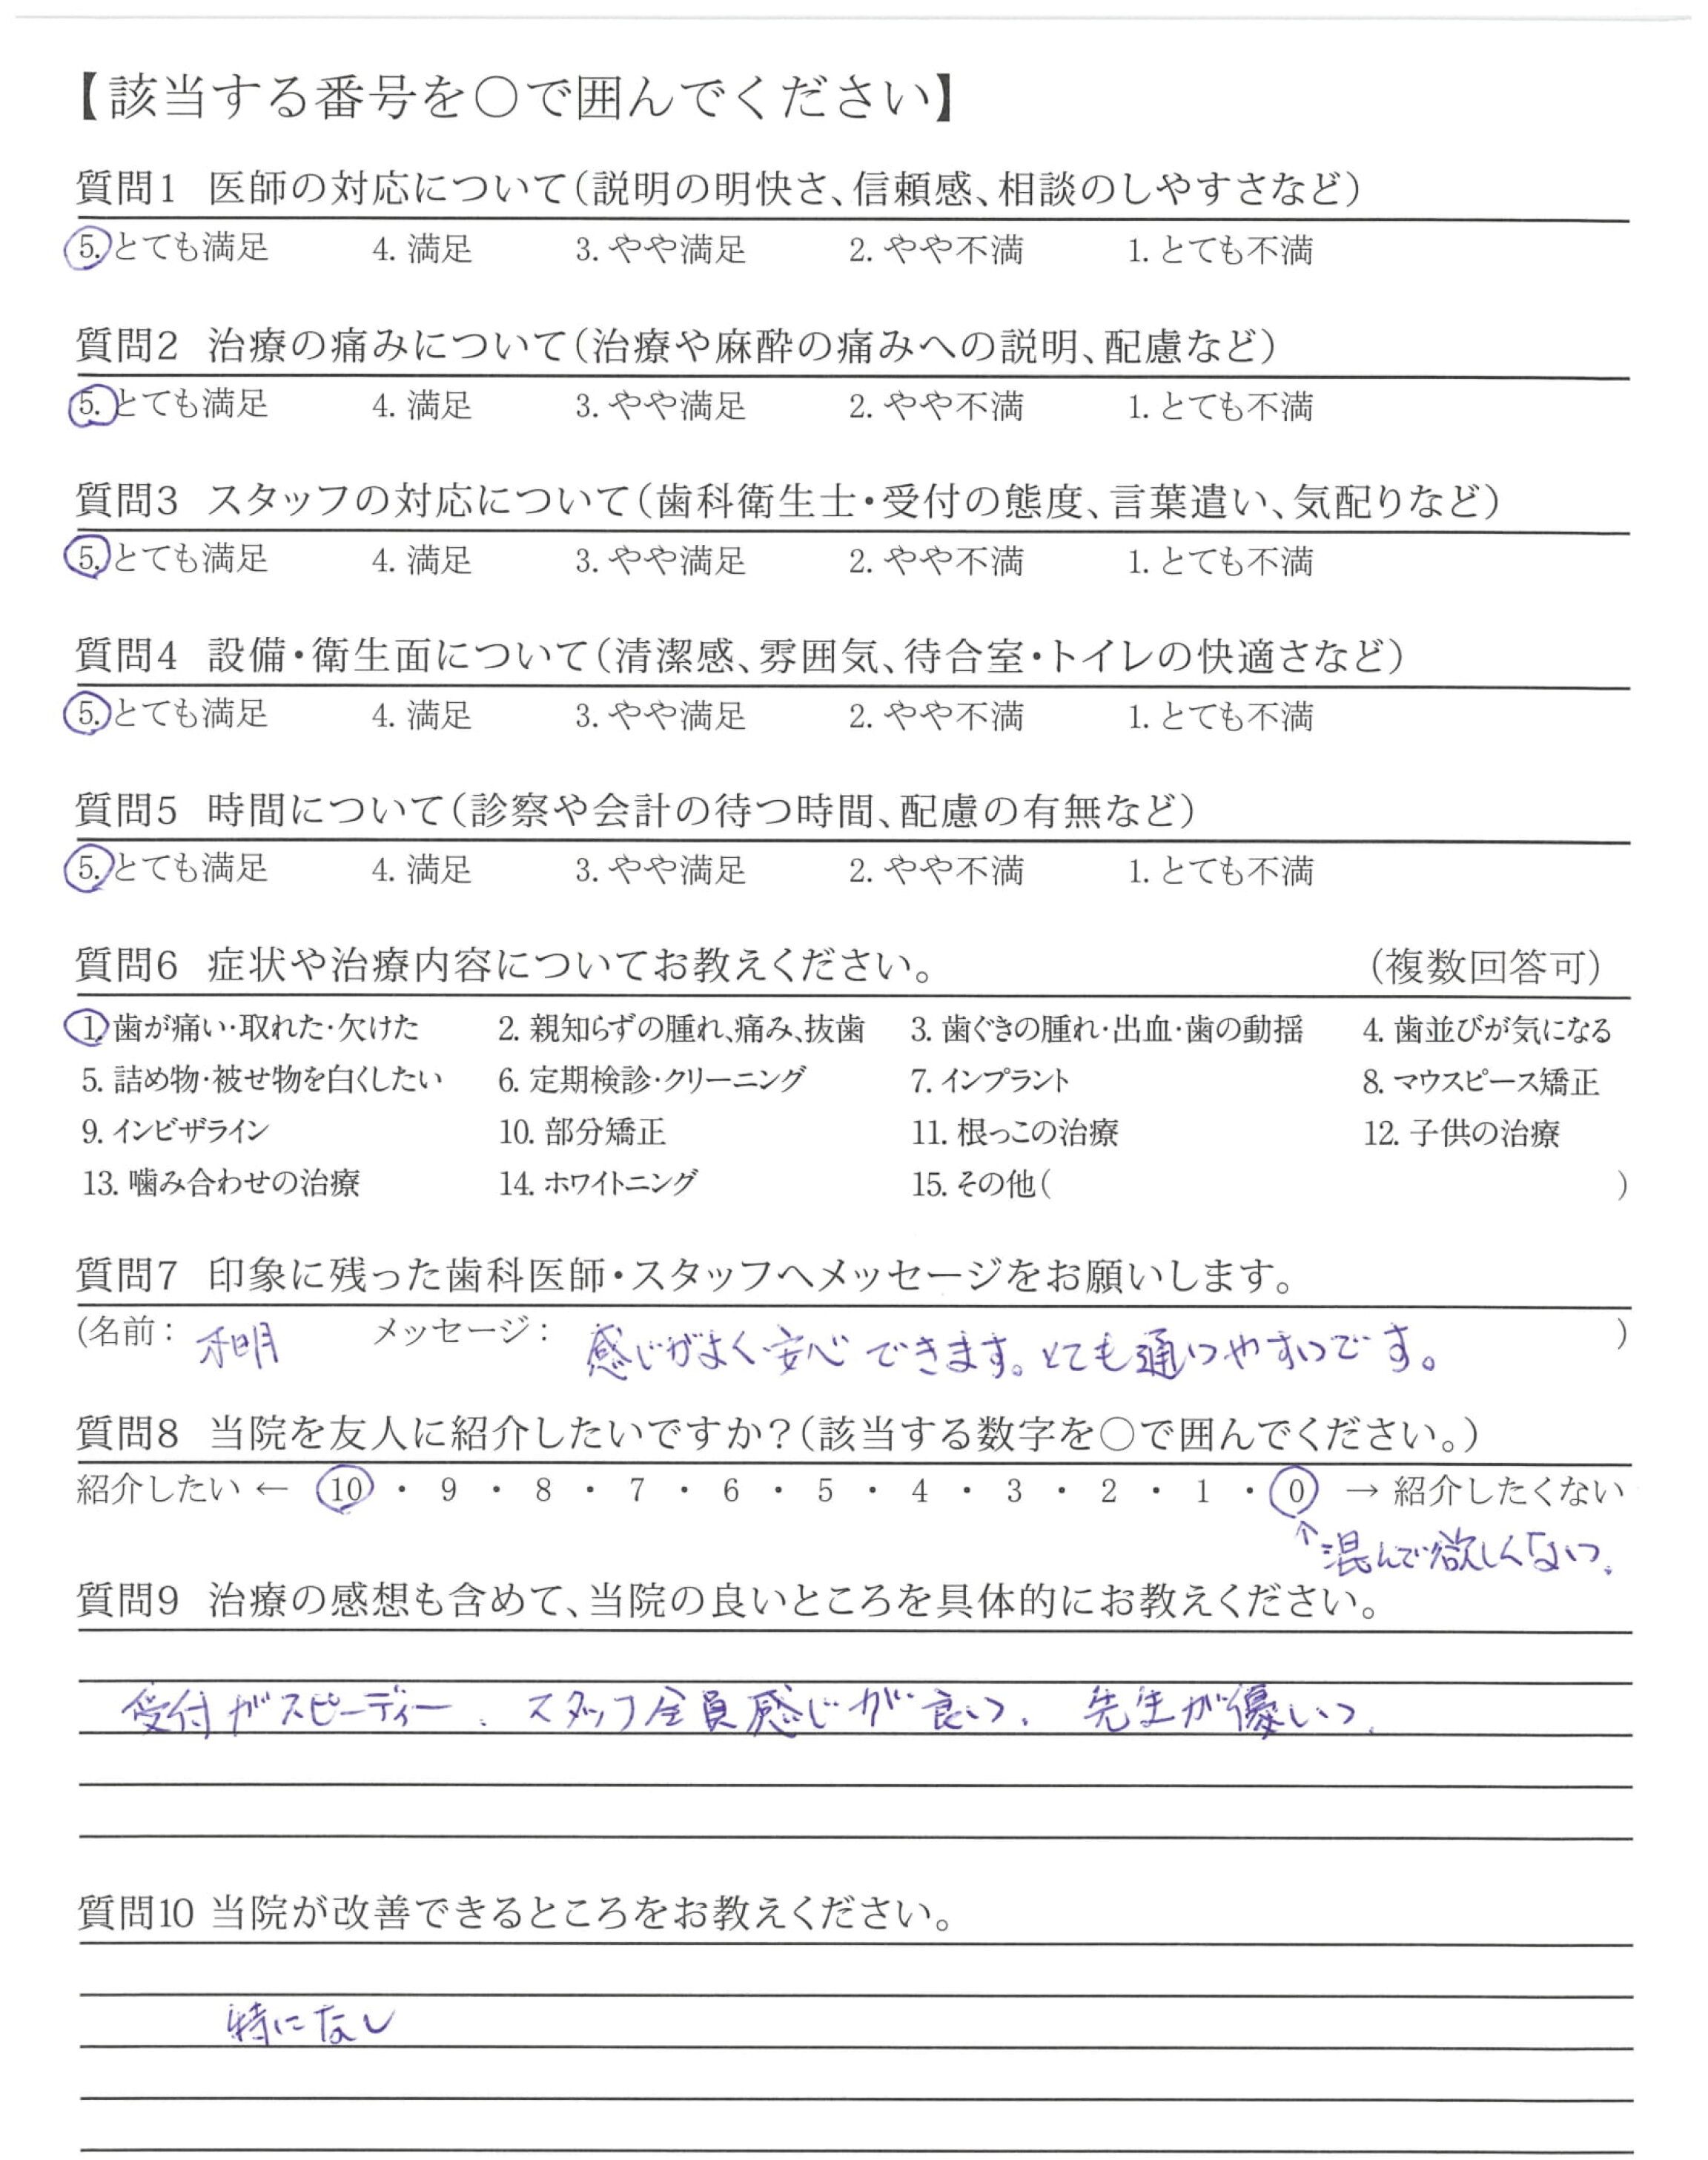 【該当する番号を○で囲んでください】
質問1 医師の対応について（説明の明快さ、信頼感、相談のしやすさなど）
5. とても満足 4. 満足 3. やや満足 2. やや不満 1. とても不満
質問2 治療の痛みについて（治療や麻酔の痛みへの説明、配慮など）
5. とても満足 4. 満足 3. やや満足 2. やや不満 1. とても不満
質問3 スタッフの対応について（歯科衛生士・受付の態度、言葉遣い、気配りなど）
5. とても満足 4. 満足 3. やや満足 2. やや不満 1. とても不満
質問4 設備・衛生面について（清潔感、雰囲気、待合室・トイレの快適さなど）
5. とても満足 4. 満足 3. やや満足 2. やや不満 1. とても不満
質問5 時間について（診察や会計の待つ時間、配慮の有無など）
5. とても満足 4. 満足 3. やや満足 2. やや不満 1. とても不満
質問6 症状や治療内容についてお教えください。 （複数回答可）
1. 歯が痛い・取れた・欠けた 2. 親知らずの腫れ、痛み、抜歯 3. 歯ぐきの腫れ・出血・歯の動揺 4. 歯並びが気になる
5. 詰め物・被せ物を白くしたい 6. 定期検診・クリーニング 7. インプラント 8. マウスピース矯正
9. インビザライン 10. 部分矯正 11. 根っこの治療 12. 子供の治療
13. 噛み合わせの治療 14. ホワイトニング 15. その他（ ）
質問7 印象に残った歯科医師・スタッフへメッセージをお願いします。
（名前： メッセージ： 感じがよく安心できます。とても通いやすいです。 ）
質問8 当院を友人に紹介したいですか？（該当する数字を○で囲んでください。）
紹介したい ← 10 ・ 9 ・ 8 ・ 7 ・ 6 ・ 5 ・ 4 ・ 3 ・ 2 ・ 1 ・ 0 → 紹介したくない
↑混んで欲しくない。
質問9 治療の感想も含めて、当院の良いところを具体的にお教えください。
受付がスピーディー、スタッフ全員感じが良い、先生が優しい。
質問10 当院が改善できるところをお教えください。
特になし